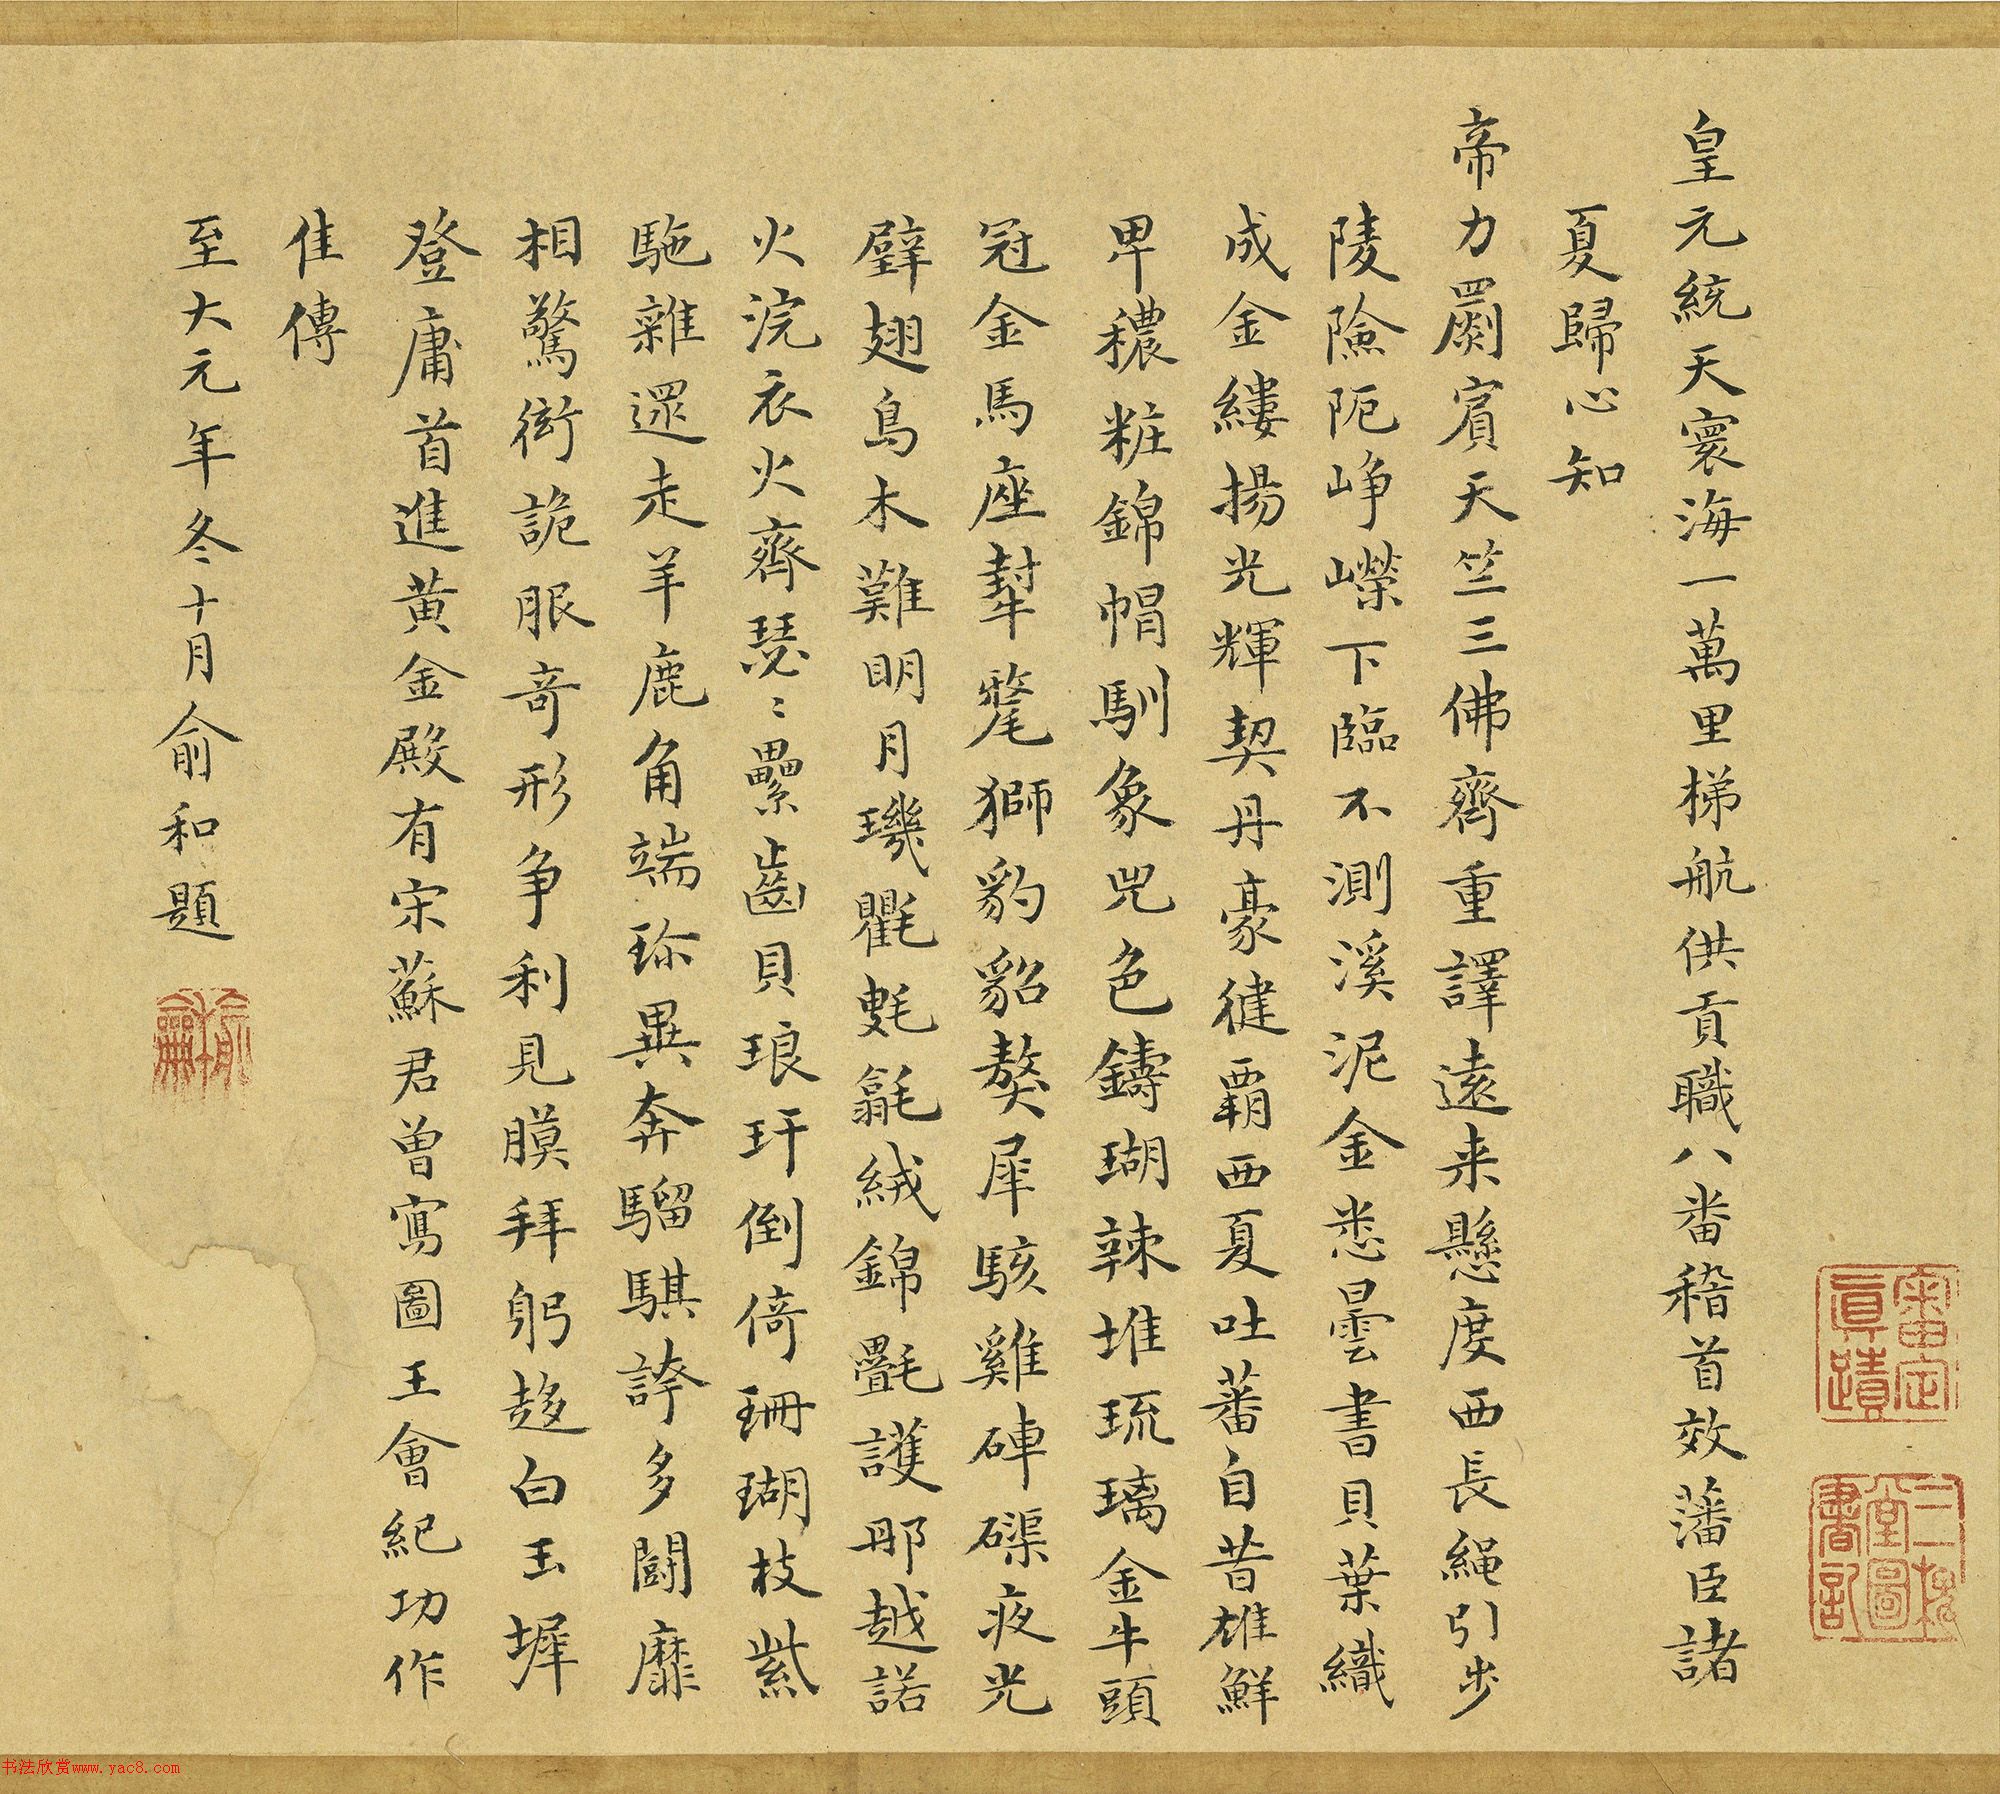 皇元統天寰海一萬里梯航供貢職八番稽首效藩臣諸
夏歸心知
帝力罽賓天竺三佛齊重譯遠来懸度西長繩引步
陵險阨崢嶸下臨不測溪泥金悉曇書貝葉織
成金縷揚光輝契丹豪徤覇西夏吐蕃自昔雄鮮
卑穠粧錦帽馴象兕色鑄瑚辣堆琉璃金牛頭
冠金馬座犎氂獅豹貂獒犀駭雞硨磲夜光
璧翅鳥木難明月璣氍毹氎絨錦㲲護那越諾
火浣衣火齊瑟〻纍齒貝琅玕倒倚珊瑚枝紫
駞雜遝走羊鹿角端珎異奔騮騏誇多鬪靡
相驚衒詭服奇形争利見膜拜躬趍白玉墀
登庸首進黃金殿有宋蘇君曽寫圖王會紀功作
隹傳
至大元年冬十月俞和題
審定真蹟
三槐堂圖書記
书法欣赏www.yac8.com